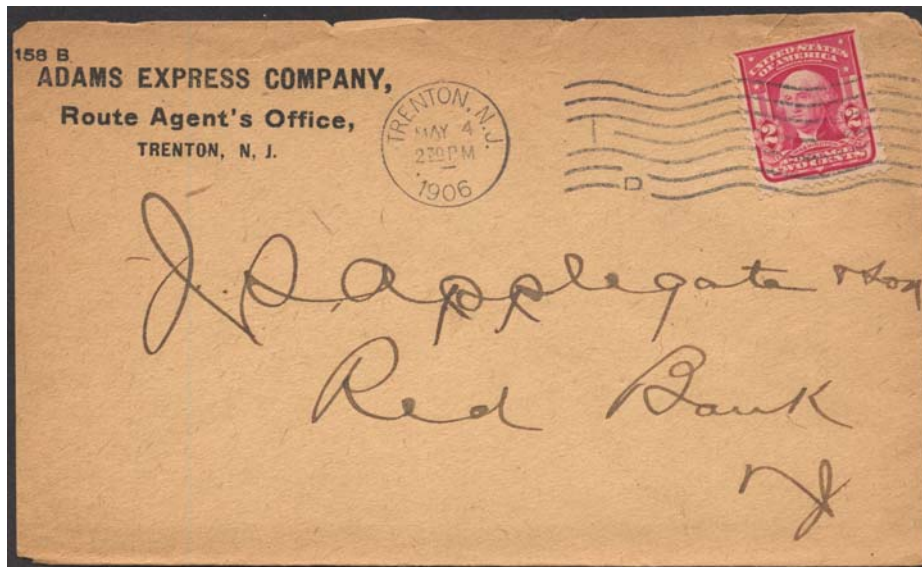 158 B
ADAMS EXPRESS COMPANY,
Route Agent's Office,
TRENTON, N. J.
TRENTON, N.J.
MAY 4
230PM
1906
D
UNITED STATES
OF AMERICA
2 2
POSTAGE
TWO CENTS
J. S. Applegate & Son
Red Bank
NJ